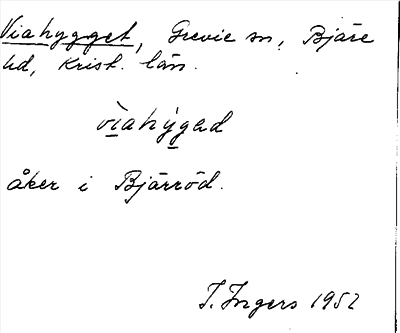 Viahygget, Grevie sn, Bjäre
hd, Krist. län.
vìahýgəd
åker i Bjärröd.
I. Ingers 1952